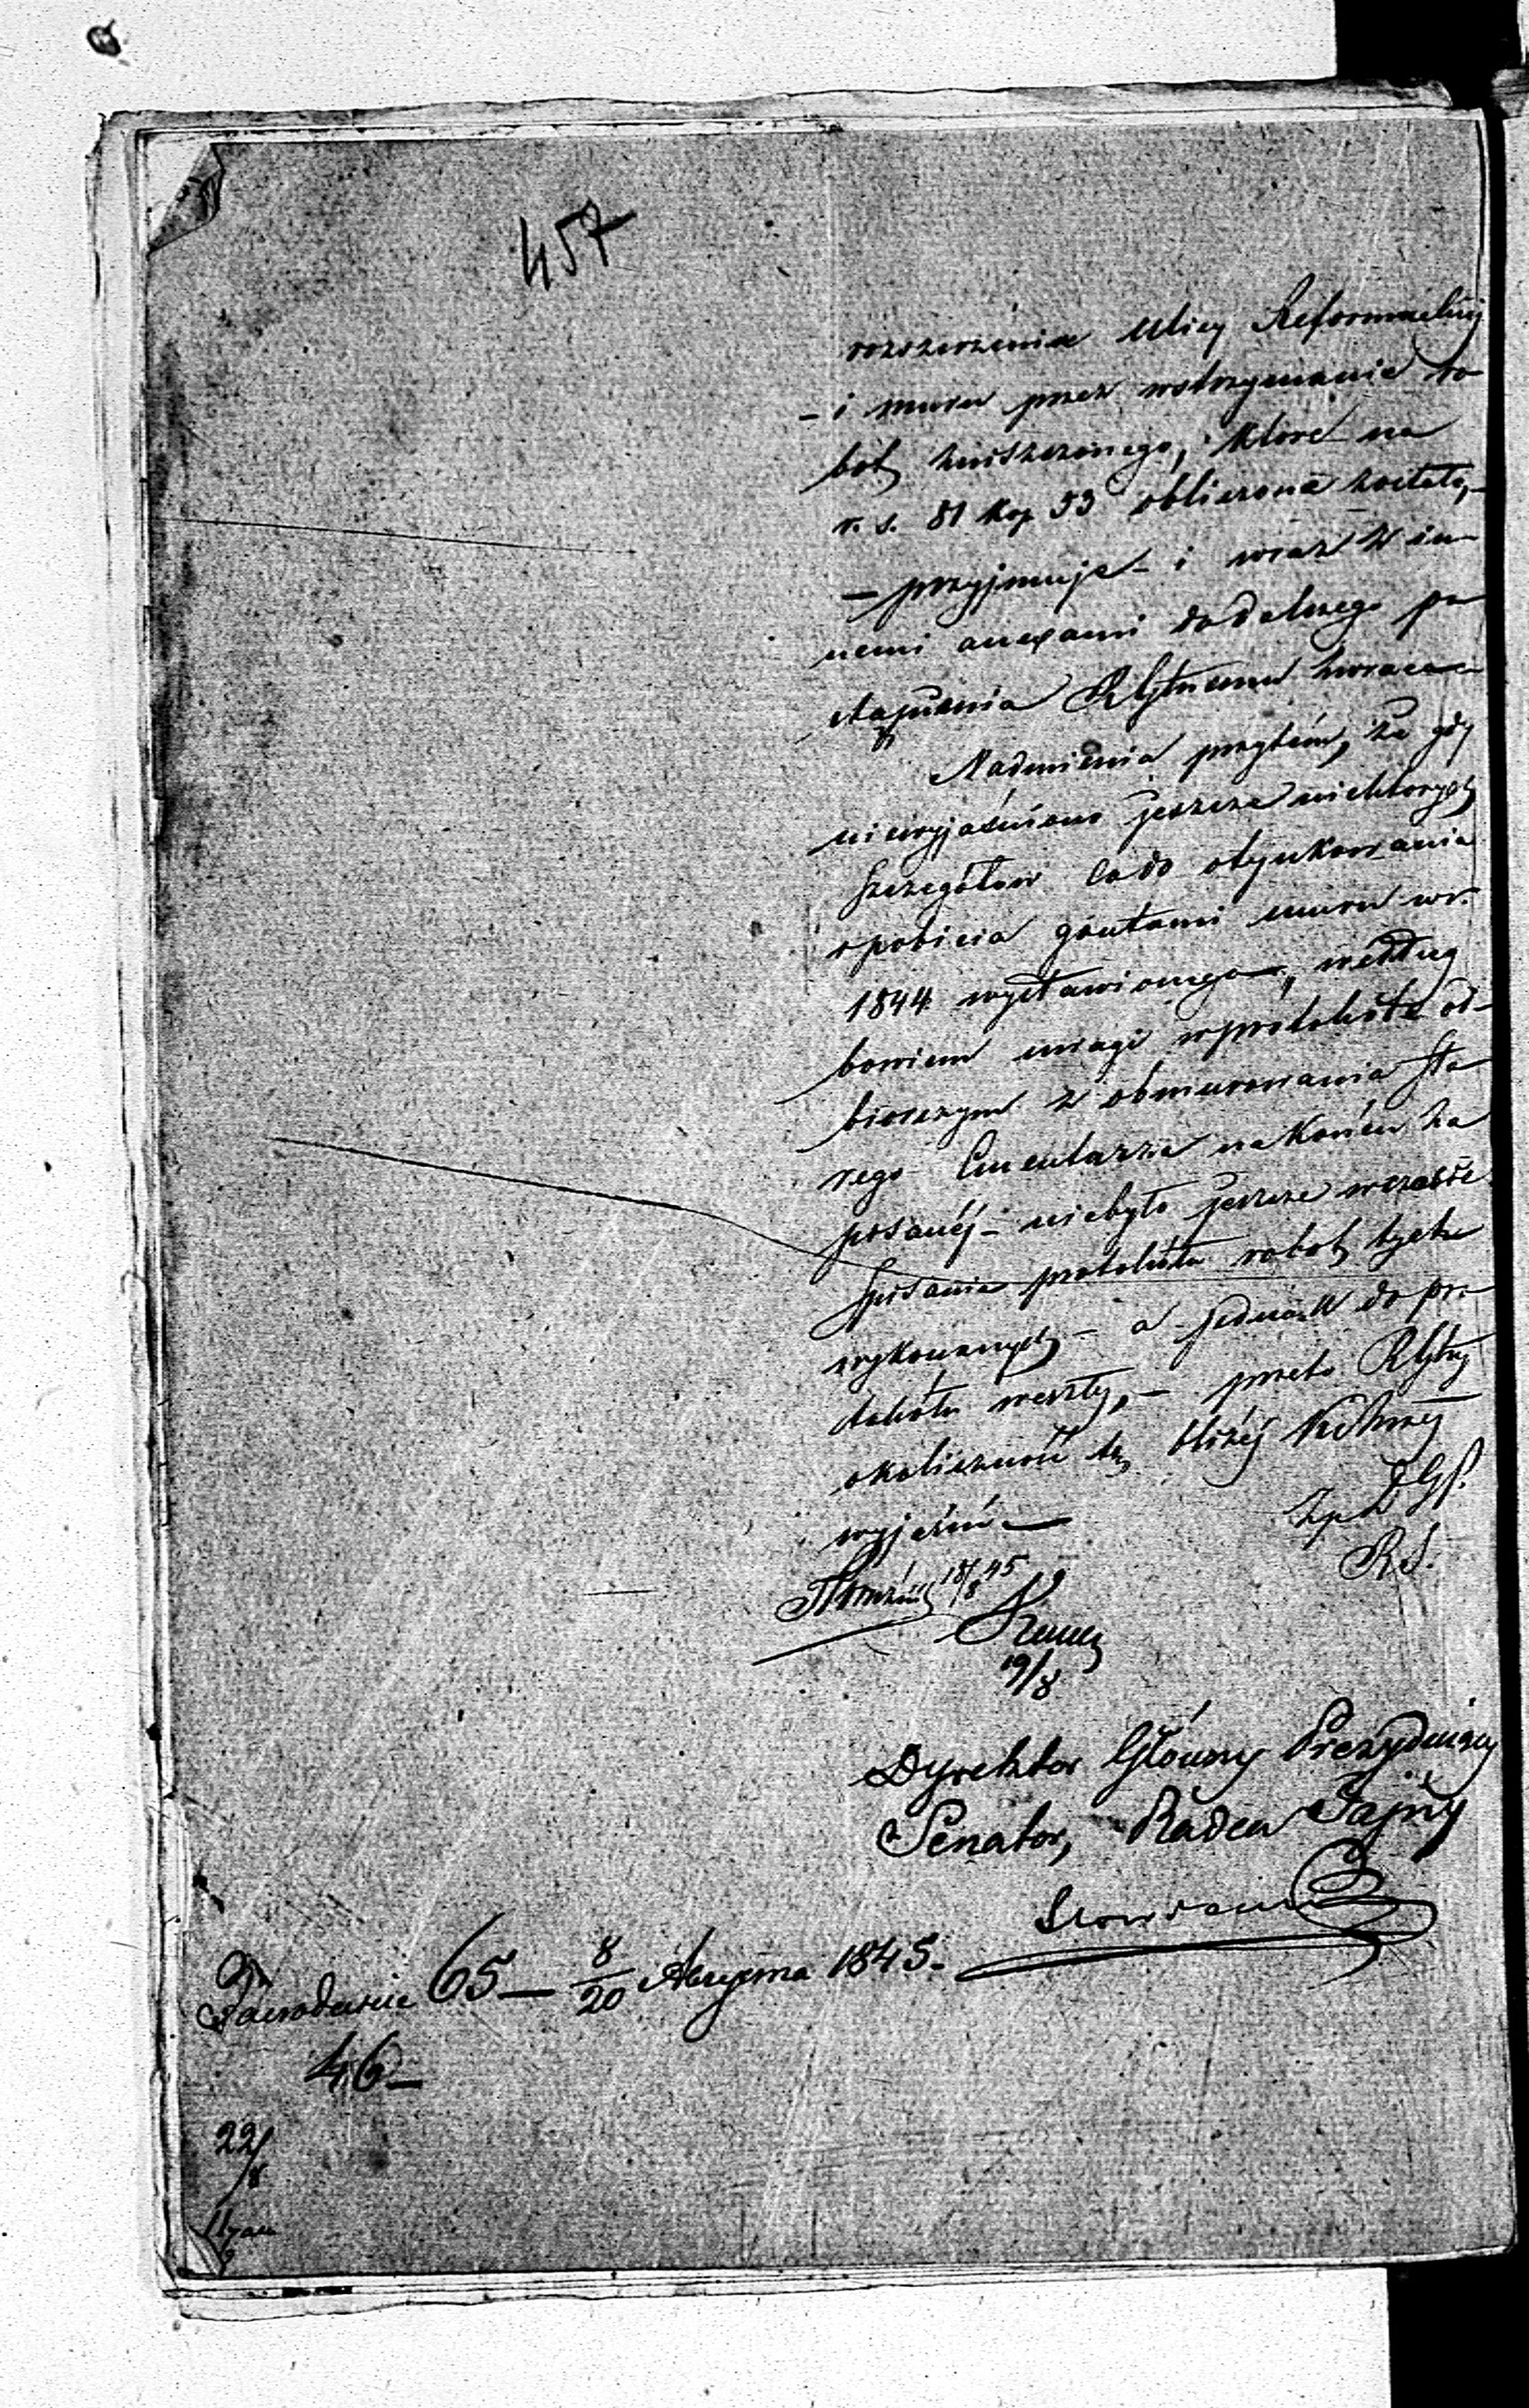 457
rozszerzenia Ulicy Reformackiej
– i muru przez wstrzymanie ro-
bot zniszczonego, które na
r. s. 81 kop 53 obliczone zostało,–
– przyjmuje – i wraz z in-
nemi anexami do dalszego po
stąpienia zwraca –
Nadmienia przytém, że gdy
niewyjaśniono jeszcze niektorych
szczegółow co do otynkowania
i pobicia gontami muru w r.
1844 wystawionego –, według
bowiem uwagi w protokóle od-
biorczym z obmurowania sta
rego Cmentarza na końcu za
pisanéj – niebyło jeszcze w czasie
spisania protokółu robot tych
wykonanych – a jednak do pro
tokółu weszły, – przeto
okoliczność tę bliżéj
wyjaśni –
18/8 45
19/8
Dyrektor Główny Prezydujący
Senator, Radca Tajny
65 – 8/20 Sierpnia 1845.
46 –
22/8